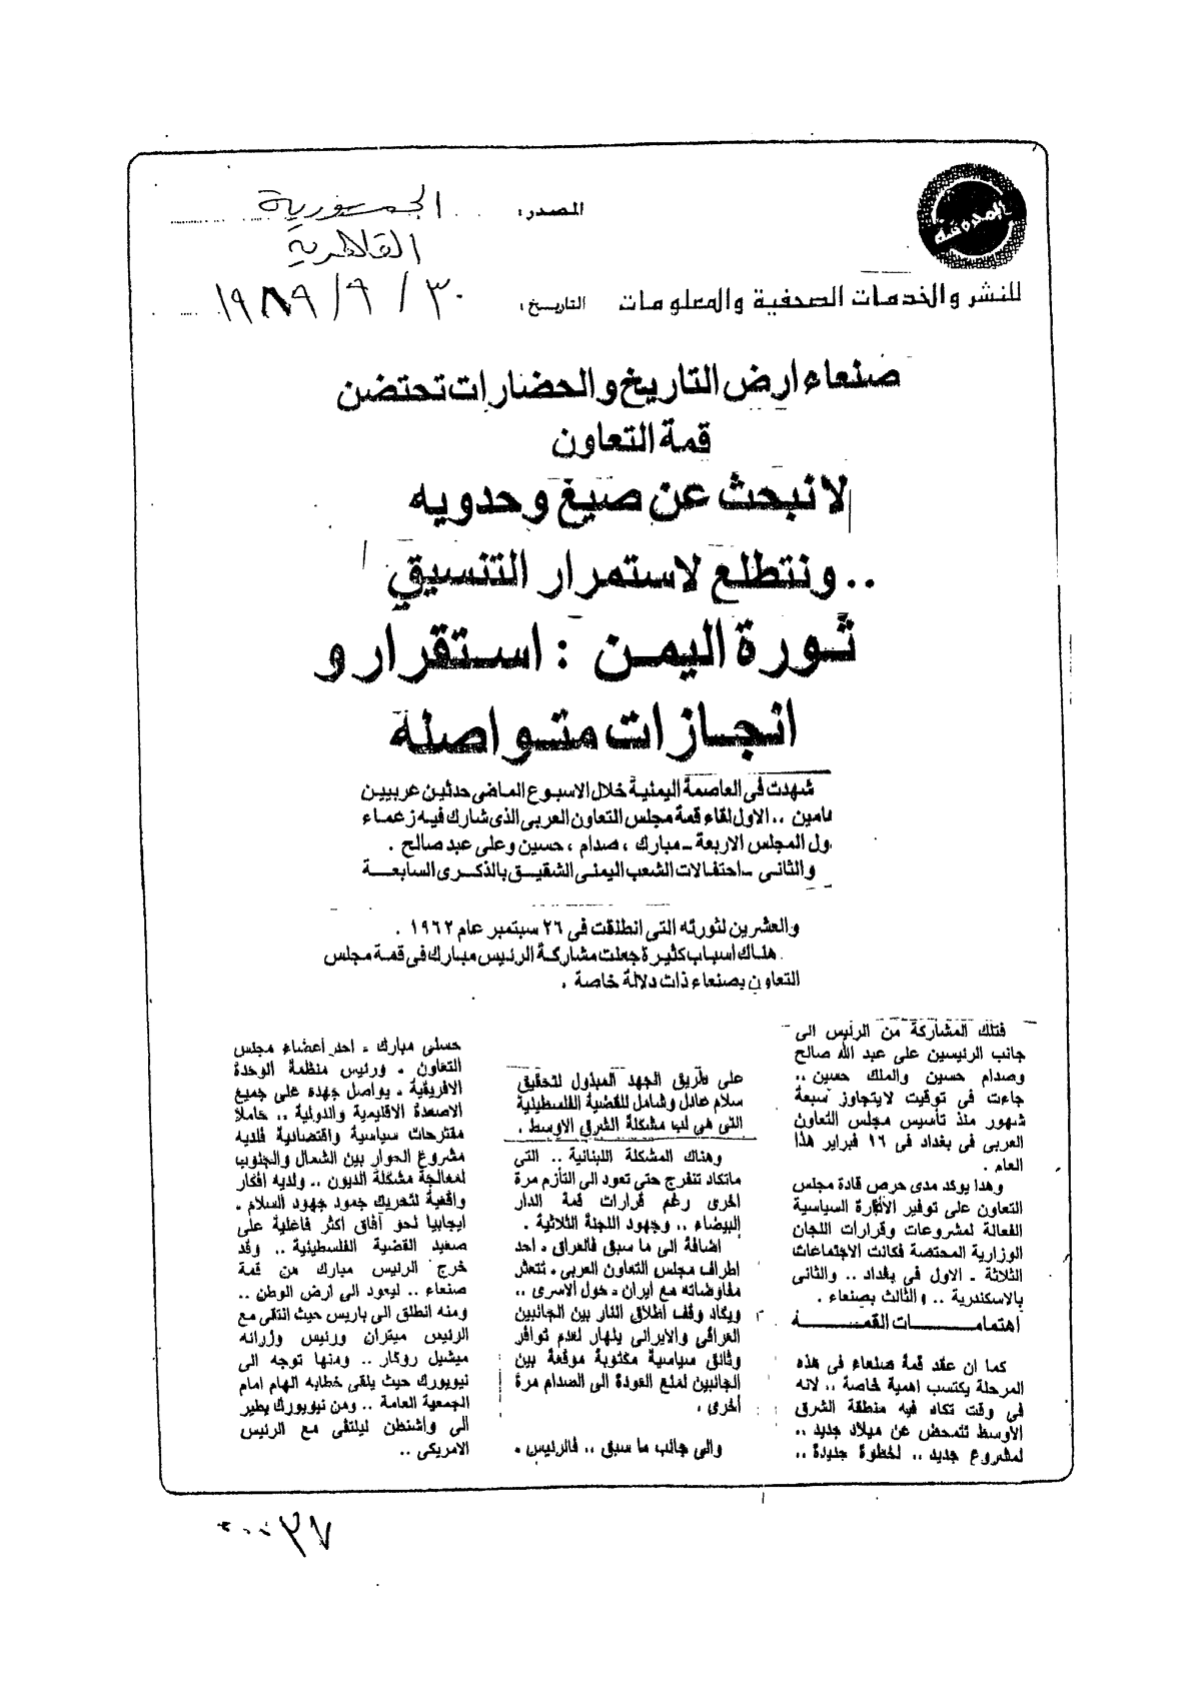 المدوقية
المصدر: الجمهورية
القاهرية
للنشر والخدمات الصحفية والمعلومات التاريخ: ٣٠ / ٩ / ١٩٨٩
صنعاء ارض التاريخ والحضارات تحتضن
قمة التعاون
لا نبحث عن صيغ وحدويه
.. ونتطلع لاستمرار التنسيق
ثورة اليمن : استقرار و
انجازات متواصلة
شهدت فى العاصمة اليمنية خلال الاسبوع الماضى حدثين عربيين
هامين .. الاول لقاء قمة مجلس التعاون العربى الذى شارك فيه زعماء
ول المجلس الاربعة ـ مبارك ، صدام ، حسين وعلى عبد صالح .
والثانى ـ احتفالات الشعب اليمنى الشقيق بالذكرى السابعة
والعشرين لثورته التى انطلقت فى ٢٦ سبتمبر عام ١٩٦٢ .
هناك اسباب كثيرة جعلت مشاركة الرئيس مبارك فى قمة مجلس
التعاون بصنعاء ذات دلالة خاصة .
فتلك المشاركة من الرئيس الى
جانب الرئيسين على عبد الله صالح
وصدام حسين والملك حسين ..
جاءت فى توقيت لايتجاوز سبعة
شهور منذ تأسيس مجلس التعاون
العربى فى بغداد فى ١٦ فبراير هذا
العام .
وهذا يوكد مدى حرص قادة مجلس
التعاون على توفير الأدارة السياسية
الفعالة لمشروعات وقرارات اللجان
الوزارية المختصة فكانت الاجتماعات
الثلاثة ـ الاول فى بغداد .. والثانى
بالاسكندرية .. والثالث بصنعاء .
اهتمامات القمة
كما ان عقد قمة صنعاء فى هذه
المرحلة يكتسب اهمية خاصة .. لانه
فى وقت تكاد فيه منطقة الشرق
الأوسط تتمخض عن ميلاد جديد ..
لمشروع جديد .. لخطوة جديدة ..
على طريق الجهد المبذول لتحقيق
سلام عادل وشامل للقضية الفلسطينية
التى هى لب مشكلة الشرق الاوسط .
وهناك المشكلة اللبنانية .. التى
ماتكاد تنفرج حتى تعود الى التأزم مرة
اخرى رغم قرارات قمة الدار
البيضاء .. وجهود اللجنة الثلاثية .
اضافة الى ما سبق فالعراق ـ احد
اطراف مجلس التعاون العربى ـ تتعثر
مفاوضاته مع ايران ـ حول الاسرى ..
ويكاد وقف اطلاق النار بين الجانبين
العراقى والايرانى ينهار لعدم توافر
وثائق سياسية مكتوبة موقعة بين
الجانبين لمنع العودة الى الصدام مرة
أخرى .
والى جانب ما سبق .. فالرئيس .
حسنى مبارك ـ احد أعضاء مجلس
التعاون ـ ورئيس منظمة الوحدة
الافريقية ـ يواصل جهدة على جميع
الاصعدة الاقليمية والدولية .. حاملا
مقترحات سياسية واقتصادية فلديه
مشروع الحوار بين الشمال والجنوب
لمعالجة مشكلة الديون .. ولديه افكار
واقعية لتحريك جمود جهود السلام .
ايجابيا نحو آفاق اكثر فاعلية على
صعيد القضية الفلسطينية .. وقد
خرج الرئيس مبارك من قمة
صنعاء .. ليعود الى ارض الوطن ..
ومنه انطلق الى باريس حيث التقى مع
الرئيس ميتران ورئيس وزرائه
ميشيل روكار .. ومنها توجه الى
نيويورك حيث يلقى خطابه الهام امام
الجمعية العامة .. ومن نيويورك يطير
الى واشنطن ليلتقى مع الرئيس
الامريكى ..